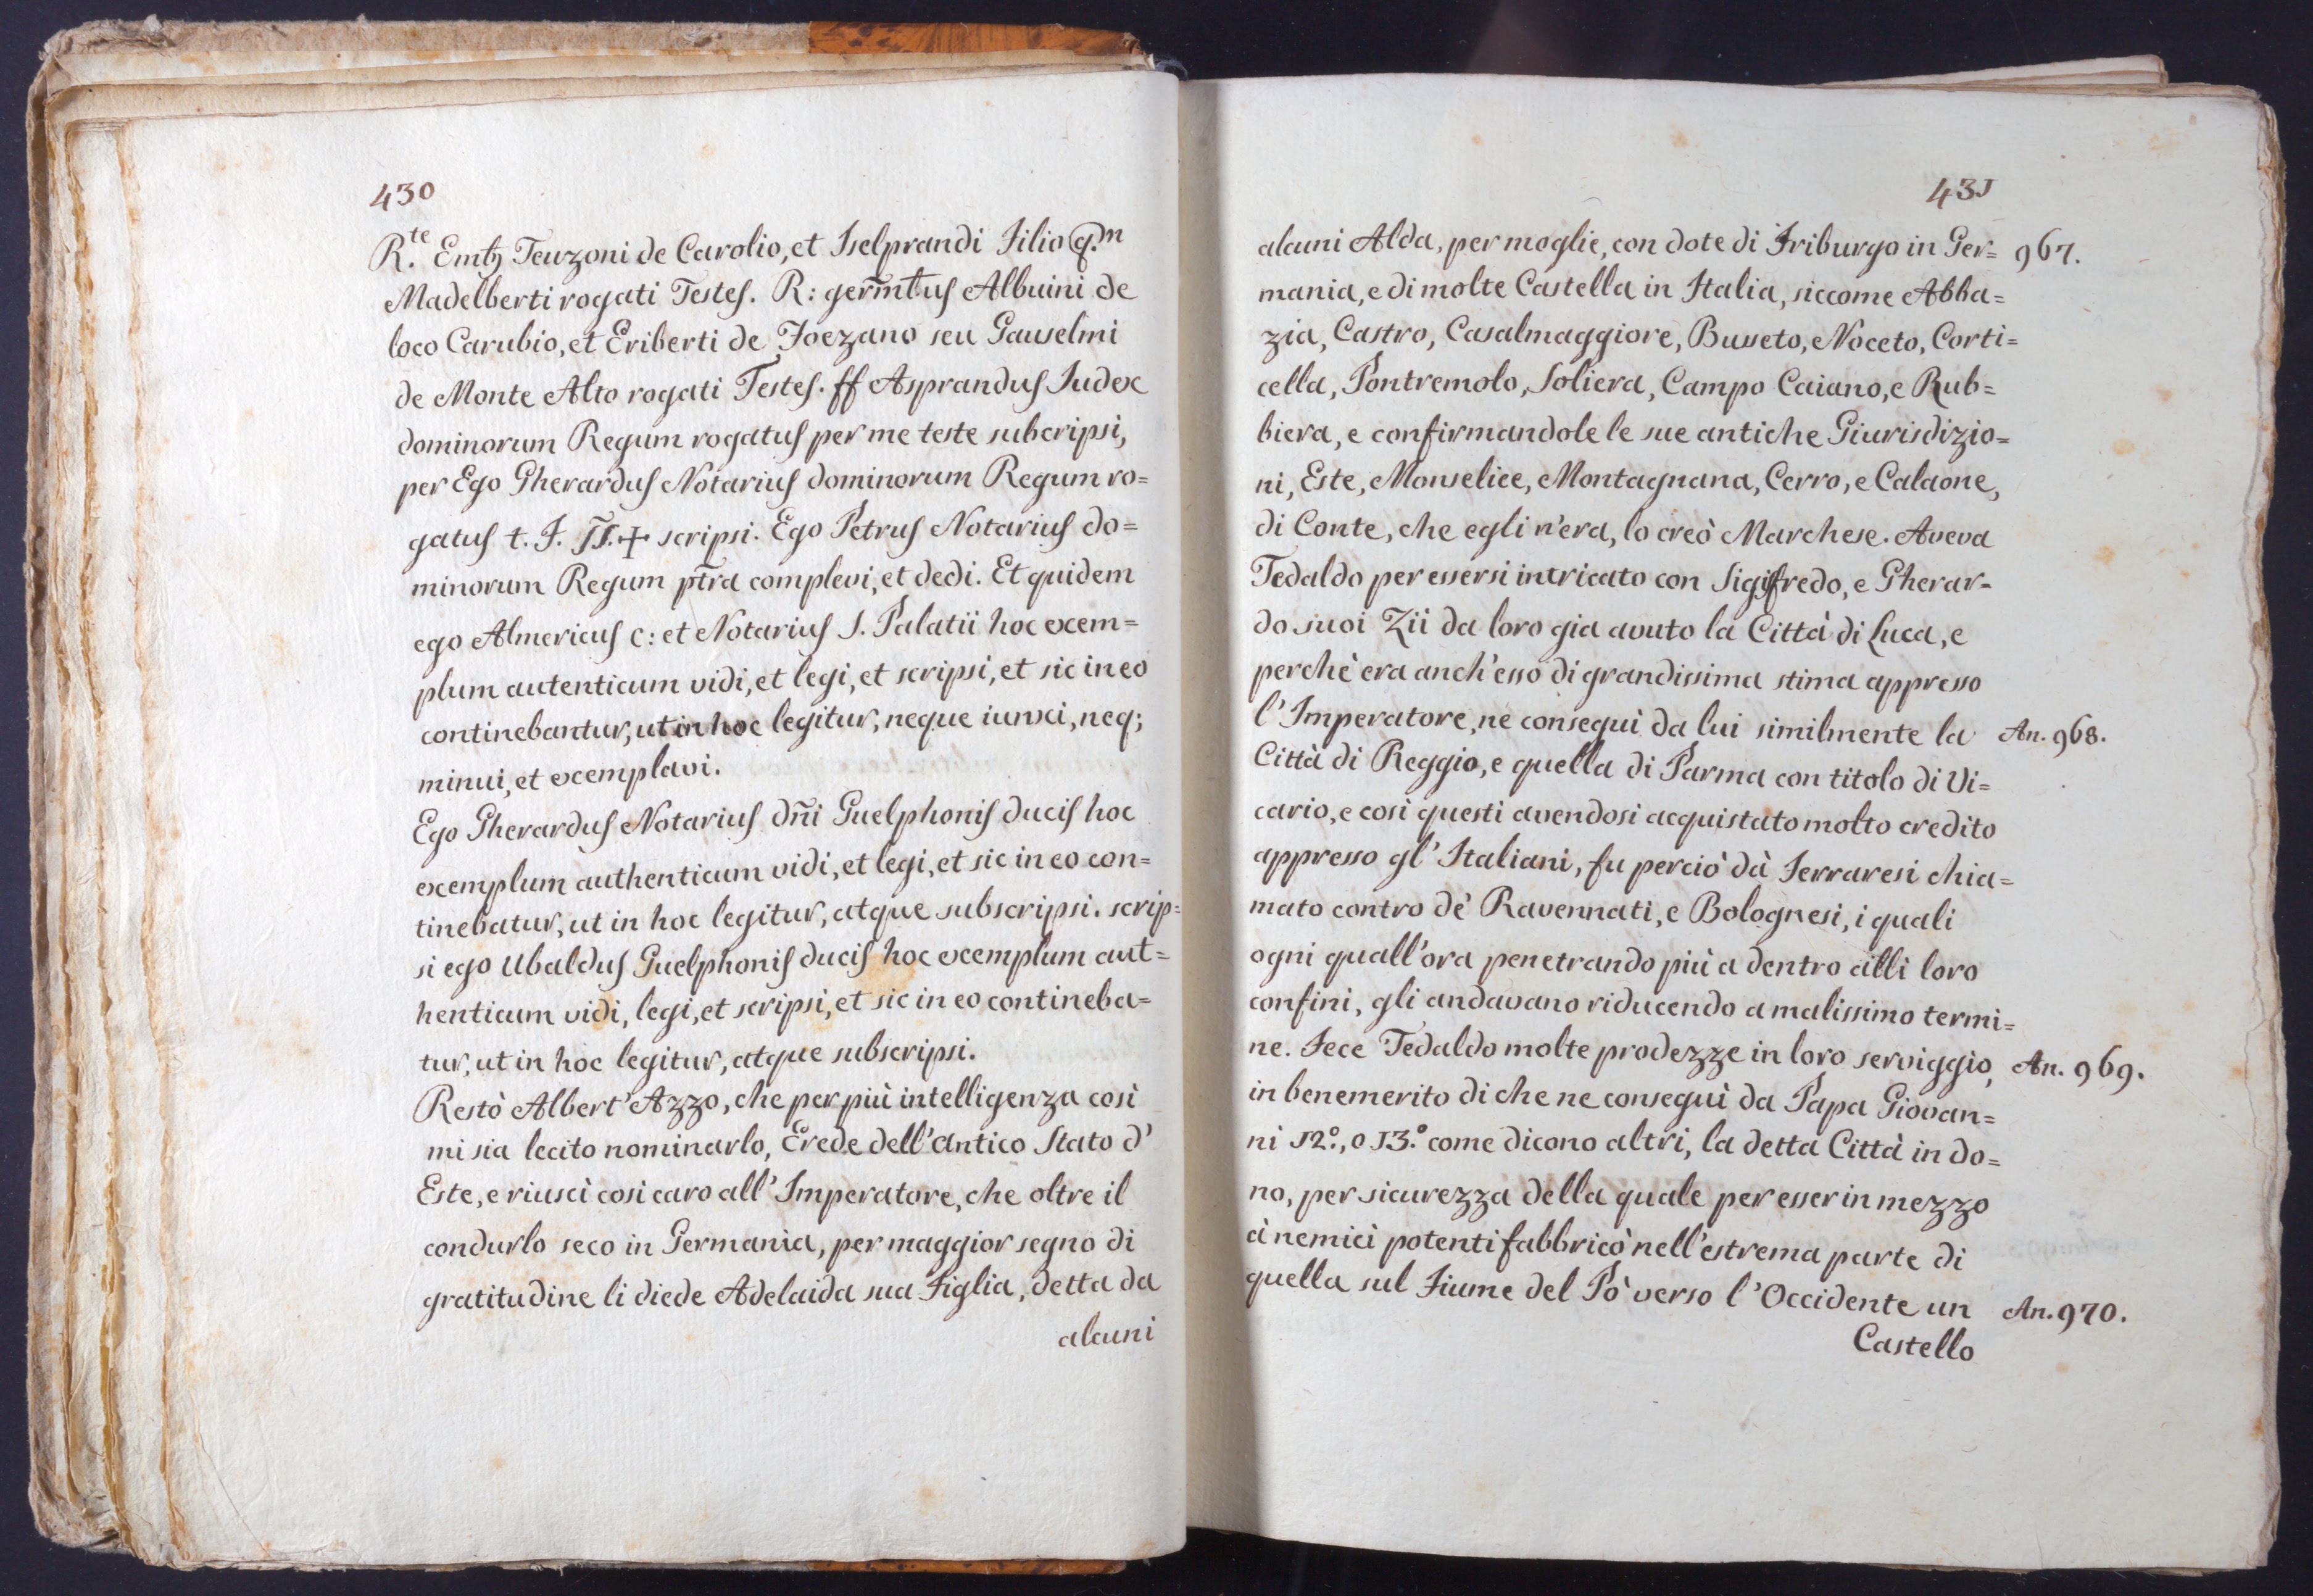 430
R.te Emtz Teuzoni de Carolio, et Iselprandi Filio q.m
Madelberti rogati Testes. R: germtus Albuini de
loco Carubio, et Eriberti de Foezano seu Gauselmi
de Monte Alto rogati Testes. ff Asprandus Iudex
dominorum Regum rogatus per me teste subcripsi,
per Ego Gherardus Notarius dominorum Regum ro=
gatus t. F. + scripsi. Ego Petrus Notarius do=
minorum Regum ptra complevi, et dedi. Et quidem
ego Almericus c: et Notarius S. Palatii hoc exem=
plum autenticum vidi, et legi, et scripsi, et sic in eo
continebantur, ut in hoc legitur, neque iunxi, neq;
minui, et exemplavi.
Ego Gherardus Notarius dñi Guelphonis ducis hoc
exemplum authenticum vidi, et legi, et sic in eo con=
tinebatur, ut in hoc legitur, atque subscripsi. scrip=
si ego Ubaldus Guelphonis ducis hoc exemplum aut=
henticum vidi, legi, et scripsi, et sic in eo contineba=
tur, ut in hoc legitur, atque subscripsi.
Restò Albert'Azzo, che per più intelligenza così
mi sia lecito nominarlo, Erede dell'antico Stato d'
Este, e riuscì così caro all'Imperatore, che oltre il
condurlo seco in Germania, per maggior segno di
gratitudine li diede Adelaida sua Figlia, detta da
alcuni
431
alcuni Alda, per moglie, con dote di Friburgo in Ger= 967.
mania, e di molte Castella in Italia, siccome Abba=
zia, Castro, Casalmaggiore, Busseto, Noceto, Corti=
cella, Pontremolo, Soliera, Campo Caiano, e Rub=
biera, e confirmandole le sue antiche Giurisdizio=
ni, Este, Monselice, Montagnana, Cerro, e Calaone,
di Conte, che egli n'era, lo creò Marchese. Aveva
Tedaldo per essersi intricato con Sigifredo, e Gherar=
do suoi Zii da loro gia avuto la Città di Luca, e
perchè era anch'esso di grandissima stima appresso
l'Imperatore, ne conseguì da lui similmente la An. 968.
Città di Reggio, e quella di Parma con titolo di Vi=
cario, e così questi avendosi acquistato molto credito
appresso gl'Italiani, fu perciò dà Ferraresi chia=
mato contro dè Ravennati, e Bolognesi, i quali
ogni quall'ora penetrando più a dentro alli loro
confini, gli andavano riducendo a malissimo termi=
ne. Fece Tedaldo molte prodezze in loro serviggio, An. 969.
in benemerito di che ne conseguì da Papa Giovan=
ni 12.°, o 13.° come dicono altri, la detta Città in do=
no, per sicurezza della quale per esser in mezzo
à nemici potenti fabbricò nell'estrema parte di
quella sul Fiume del Pò verso l'Occidente un An. 970.
Castello